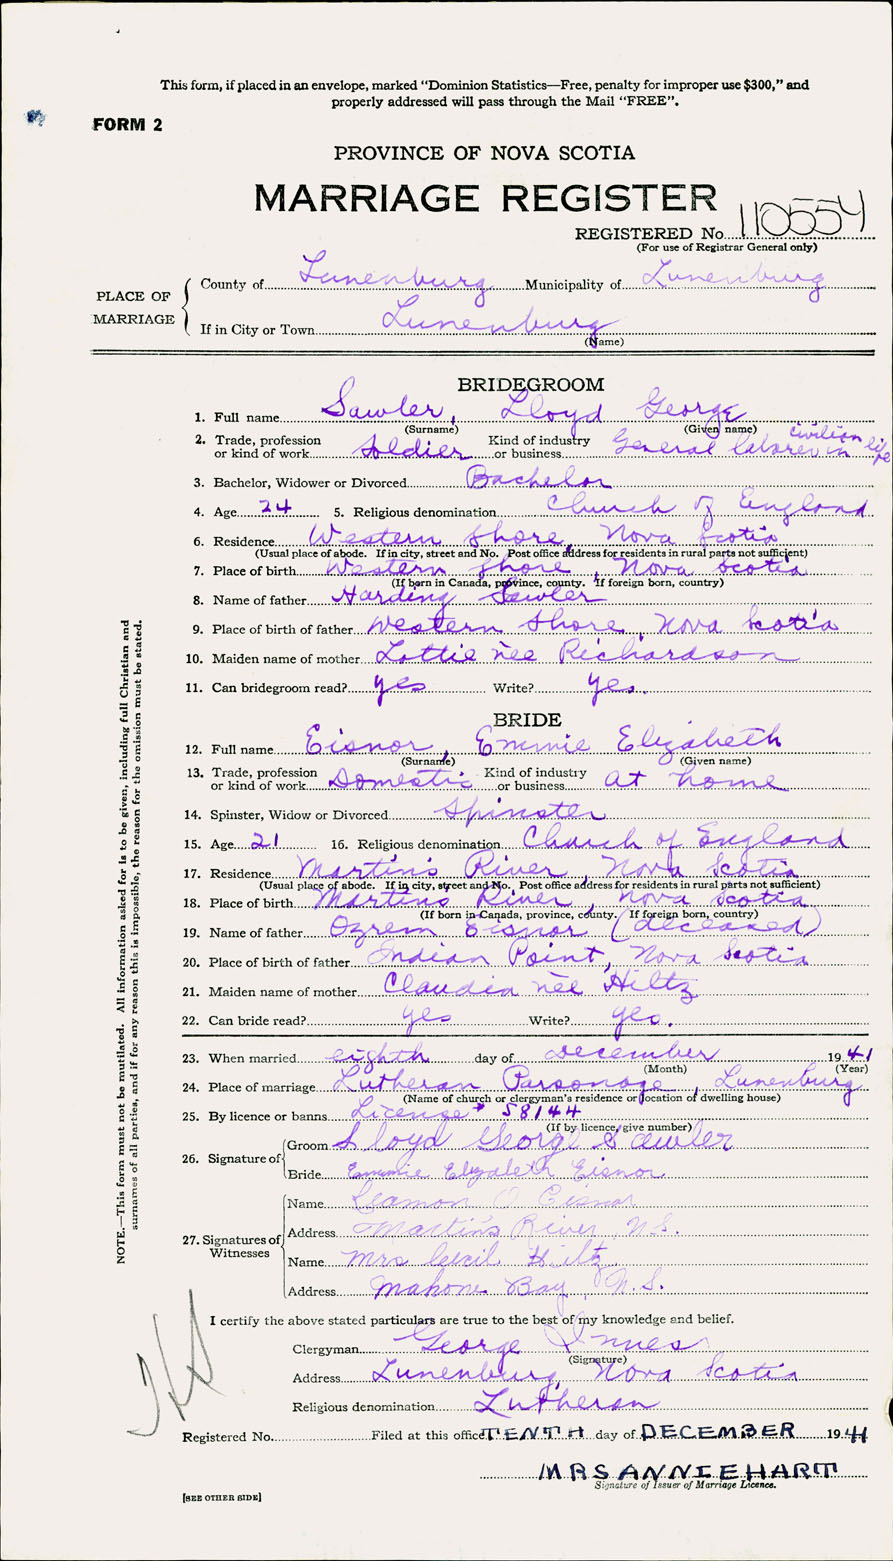 This form, if placed in an envelope, marked “Dominion Statistics—Free, penalty for improper use $300,” and
properly addressed will pass through the Mail “FREE”.
FORM 2
PROVINCE OF NOVA SCOTIA
MARRIAGE REGISTER
REGISTERED No. 110554
(For use of Registrar General only)
PLACE OF MARRIAGE
County of Lunenburg Municipality of Lunenburg
If in City or Town Lunenburg
(Name)
BRIDEGROOM
1. Full name Sawler, Lloyd George
(Surname) (Given name)
2. Trade, profession or kind of work Soldier Kind of industry or business General laborer in civilian life
3. Bachelor, Widower or Divorced Bachelor
4. Age 24 5. Religious denomination Church of England
6. Residence Western Shore, Nova Scotia
(Usual place of abode. If in city, street and No. Post office address for residents in rural parts not sufficient)
7. Place of birth Western Shore, Nova Scotia
(If born in Canada, province, county. If foreign born, country)
8. Name of father Harding Sawler
9. Place of birth of father Western Shore, Nova Scotia
10. Maiden name of mother Lottie nèe Richardson
11. Can bridegroom read? yes Write? yes.
BRIDE
12. Full name Eisnor, Emmie Elizabeth
(Surname) (Given name)
13. Trade, profession or kind of work Domestic Kind of industry or business at home
14. Spinster, Widow or Divorced Spinster
15. Age 21 16. Religious denomination Church of England
17. Residence Martins River, Nova Scotia
(Usual place of abode. If in city, street and No. Post office address for residents in rural parts not sufficient)
18. Place of birth Martins River, Nova Scotia
(If born in Canada, province, county. If foreign born, country)
19. Name of father Ozrem Eisnor (deceased)
20. Place of birth of father Indian Point, Nova Scotia
21. Maiden name of mother Claudia nèe Hiltz
22. Can bride read? yes Write? yes.
23. When married eighth day of December 1941
(Month) (Year)
24. Place of marriage Lutheran Parsonage, Lunenburg
(Name of church or clergyman's residence or location of dwelling house)
25. By licence or banns License # 58144
(If by licence, give number)
26. Signature of
Groom Lloyd George Sawler
Bride Emmie Elizabeth Eisnor
27. Signatures of Witnesses
Name Eisnor
Address Martins River, N.S.
Name Mrs Cecil Hiltz
Address Mahone Bay, N.S.
I certify the above stated particulars are true to the best of my knowledge and belief.
Clergyman George Innes
(Signature)
Address Lunenburg, Nova Scotia
Religious denomination Lutheran
Registered No. Filed at this office TENTH day of DECEMBER 1941
MRS ANNIE HART
Signature of Issuer of Marriage Licence.
[SEE OTHER SIDE]
NOTE.—This form must not be mutilated. All information asked for is to be given, including full Christian and
surnames of all parties, and if for any reason this is impossible, the reason for the omission must be stated.